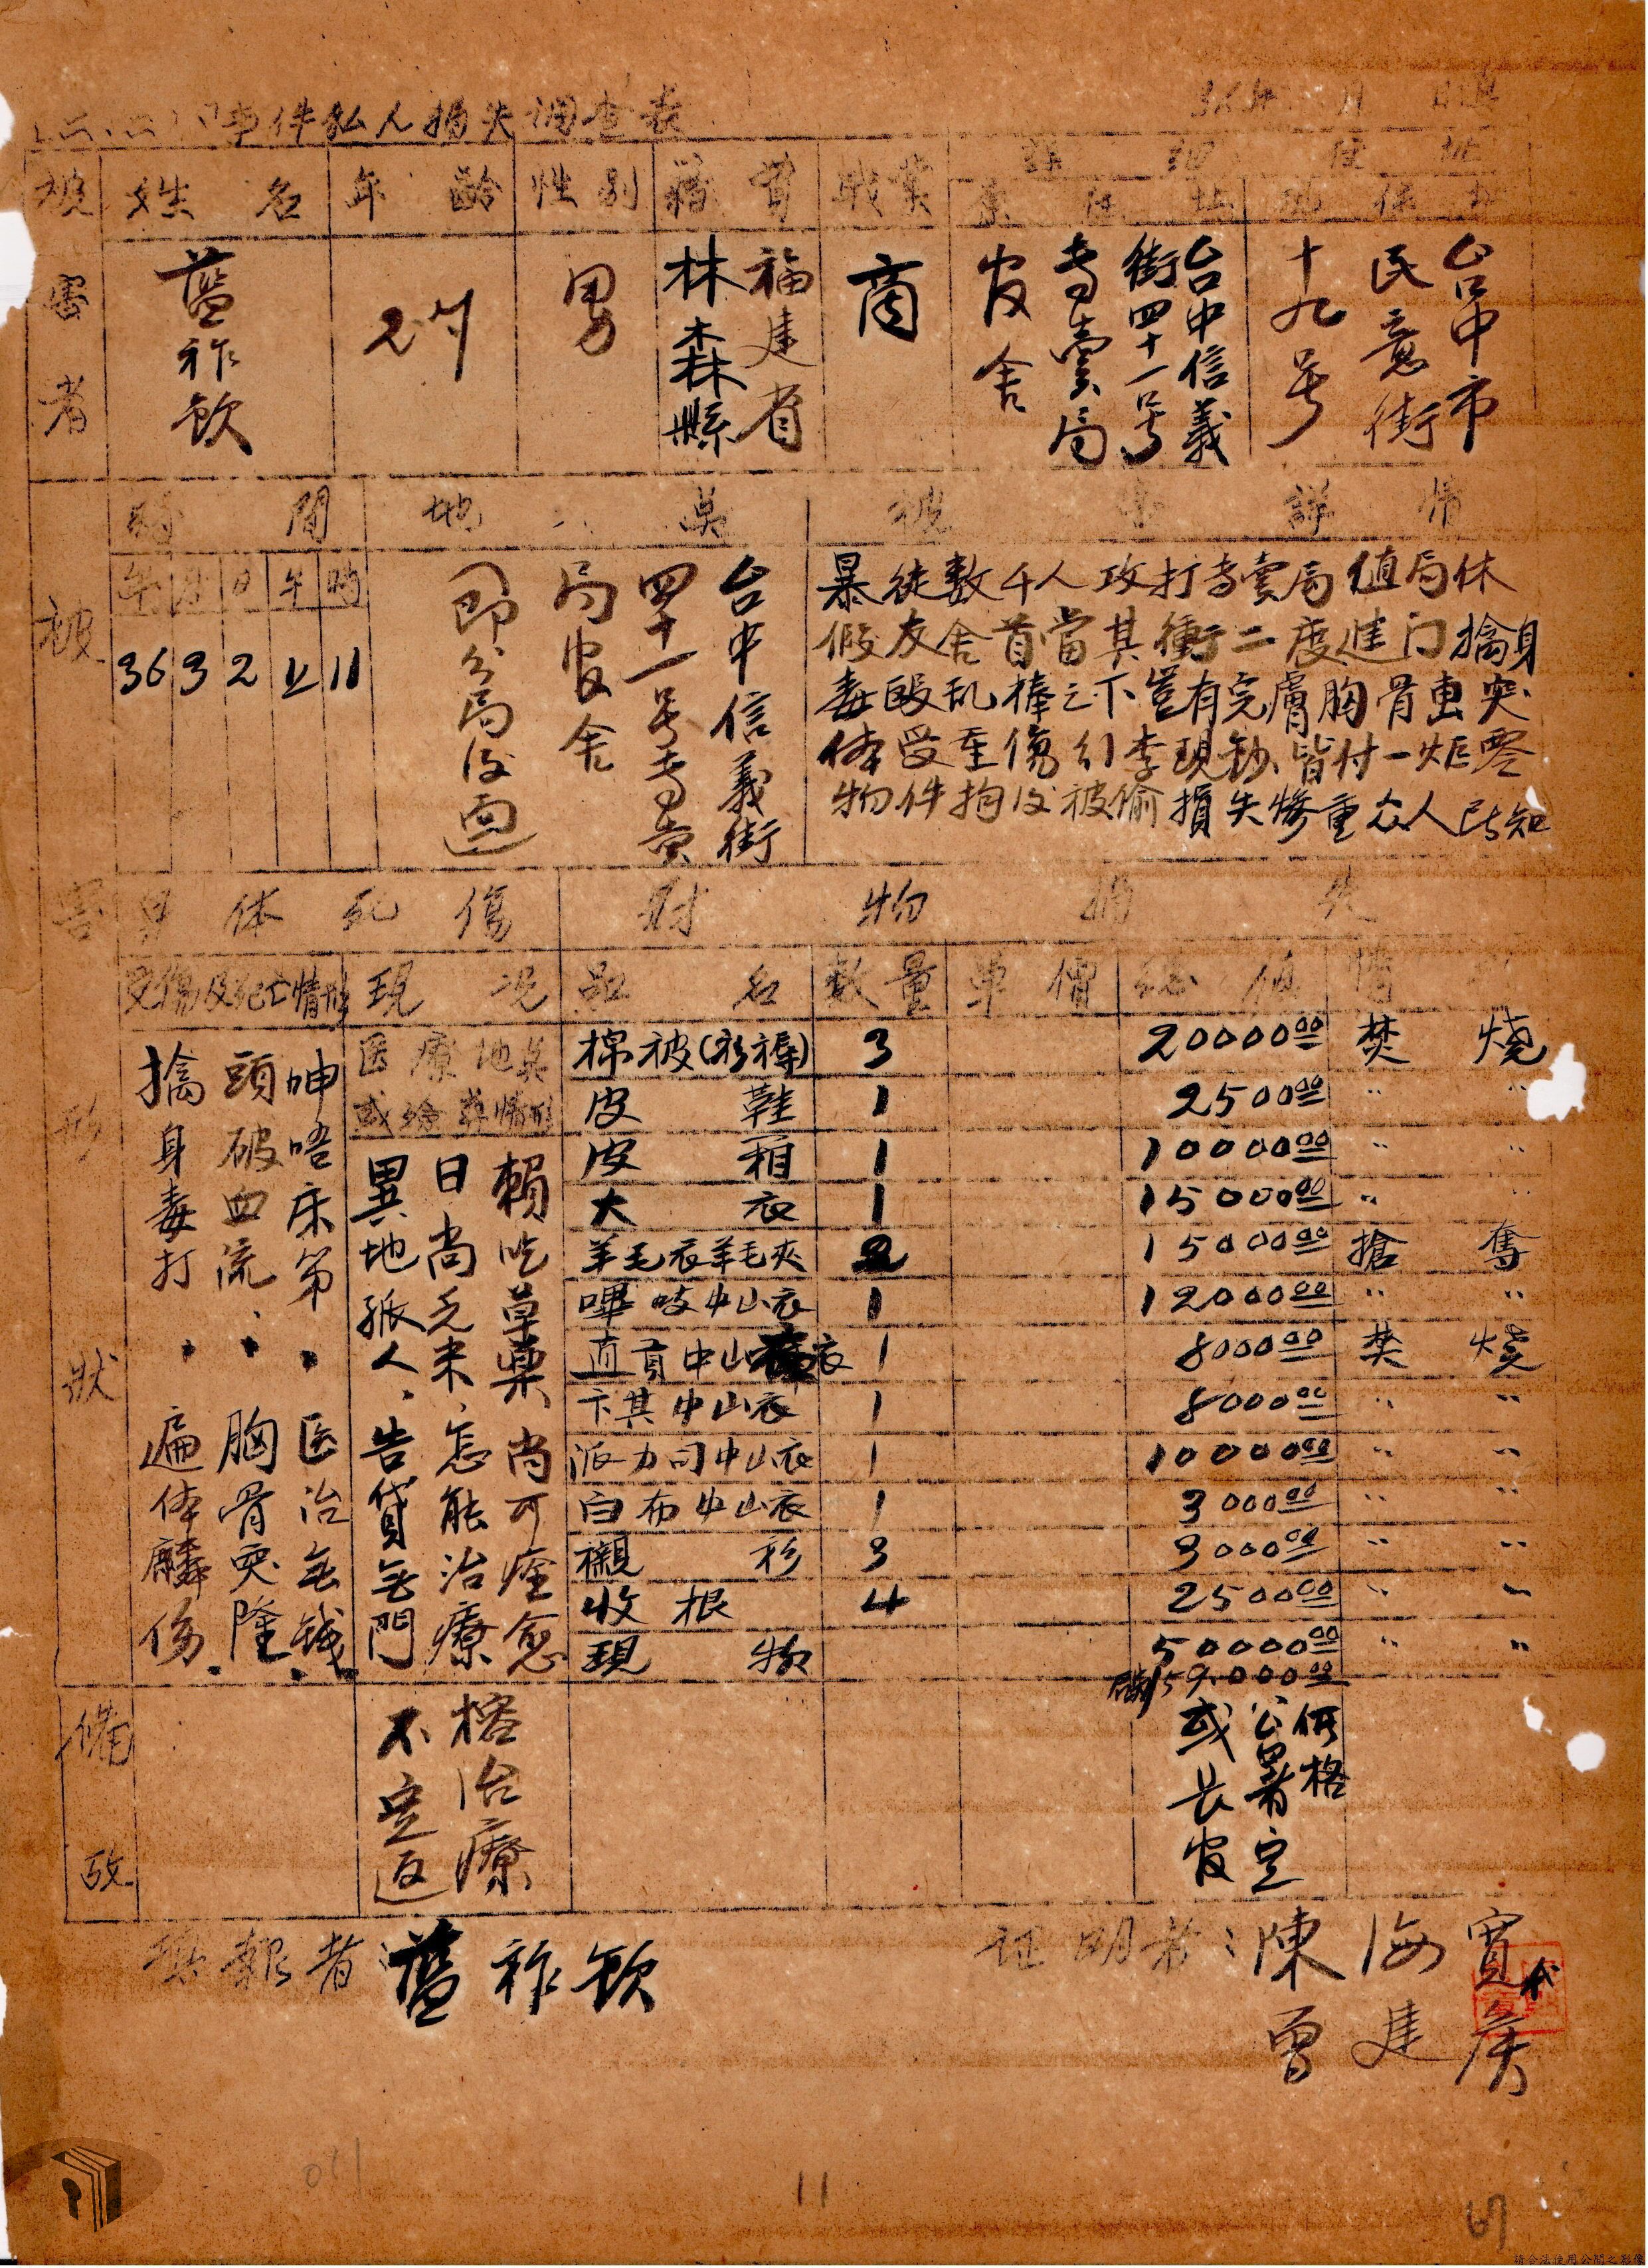 二.二八事件私人損失調查表
36年 月 日填
被害者
姓名 年齡 性別 籍貫 職業 詳細住址
原住址 現住址
藍祚欽
27
男
福建省
林森縣
商
台中信義
街四十一號
專賣局
宿舍
台中市
民意街
十九号
被害形狀
時間 地點 被害詳情
年 月 日 午 時
36 3 2 上 11
台中信義街
四十一号專賣
局宿舍
即分局後面
暴徒数千人攻打專賣局值局休
假友舍首當其衝二度進门擒身
毒毆乱棒之下豈有完膚胸骨重突
体受重傷行李現鈔皆付一炬零
物件拘後被偷損失慘重众人皆知
身体死傷 財物損失
受傷及死亡情形 現况 品名 数量 單價 總值 情形
医療地點
或殮葬情形
呻唔床第、医治無錢.
頭破血流、胸骨突隆.
擒身毒打、遍体麟伤.
賴吃草藥尚可痊愈
日尚乏米、怎能治療
異地孤人、告貸無門
棉被(衫褥) 3 20000.00 焚燒
皮鞋 1 2500.00 〃 〃
皮箱 1 10000.00 〃 〃
大衣 1 15000.00 〃 〃
羊毛衣羊毛夾 2 15000.00 搶奪
嗶吱中山衣 1 12000.00 〃 〃
直貢中山衣 1 8000.00 焚燒
卞其中山衣 1 8000.00 〃 〃
派力司中山衣 1 10000.00 〃 〃
白布中山衣 1 3000.00 〃 〃
襯衫 3 3000.00 〃 〃
收根 4 2500.00 〃 〃
現物 50000.00 〃 〃
159.000.00
備攷
榕治療
不定返
價格
公署定
或長官
填報者:藍祚欽
証明者:陳海寬 代
曾建侯
11
67
請合法使用公開之影像